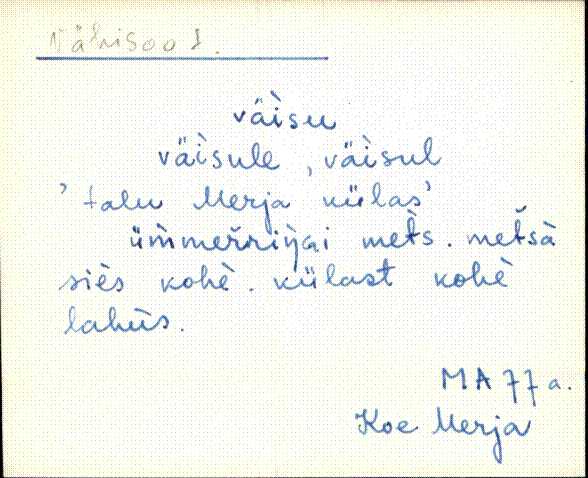 väìsu
väìsule, väìsul
'talu Merja külas'
ümmeřriŋ̀gai mets. metšä̀
siès kohè. külast kohè
lahùs.
MA 77 a.
Koe Merja